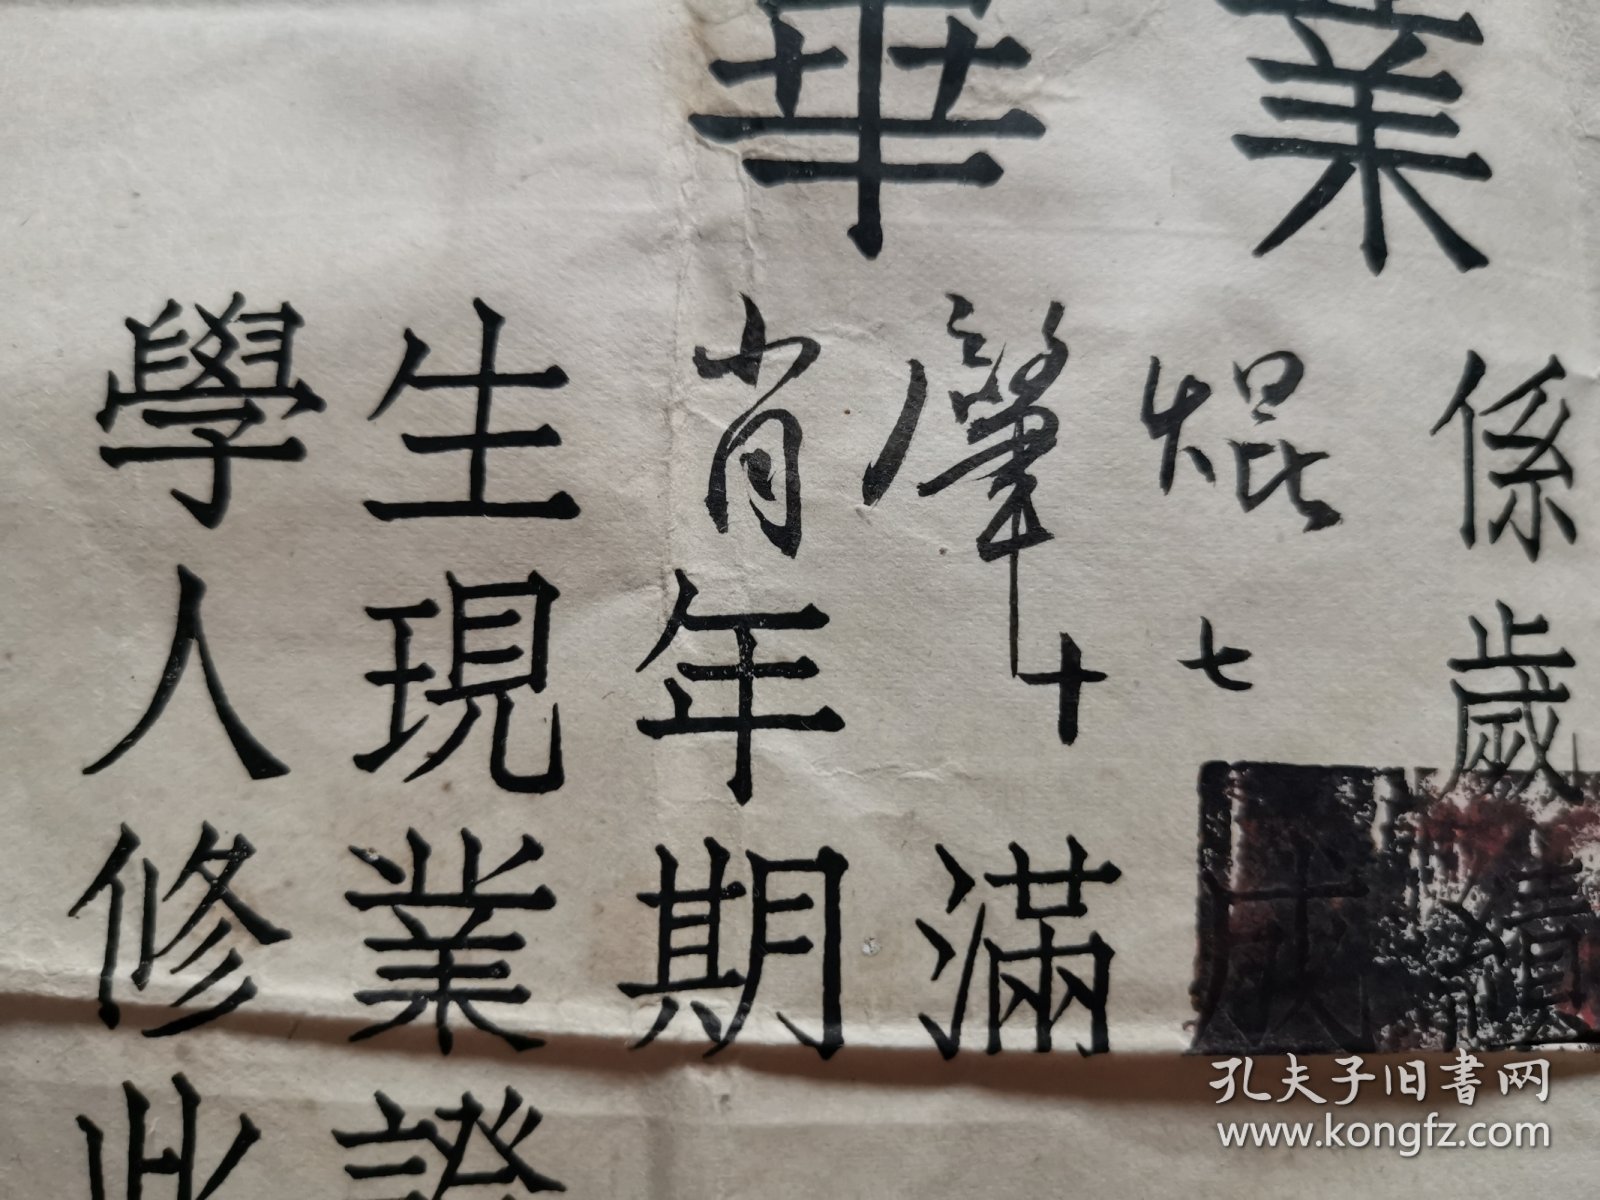 畢業
學生肖肇焜係
人現年十七歲
修業期滿成績
此證
孔夫子旧書网
www.kongfz.com